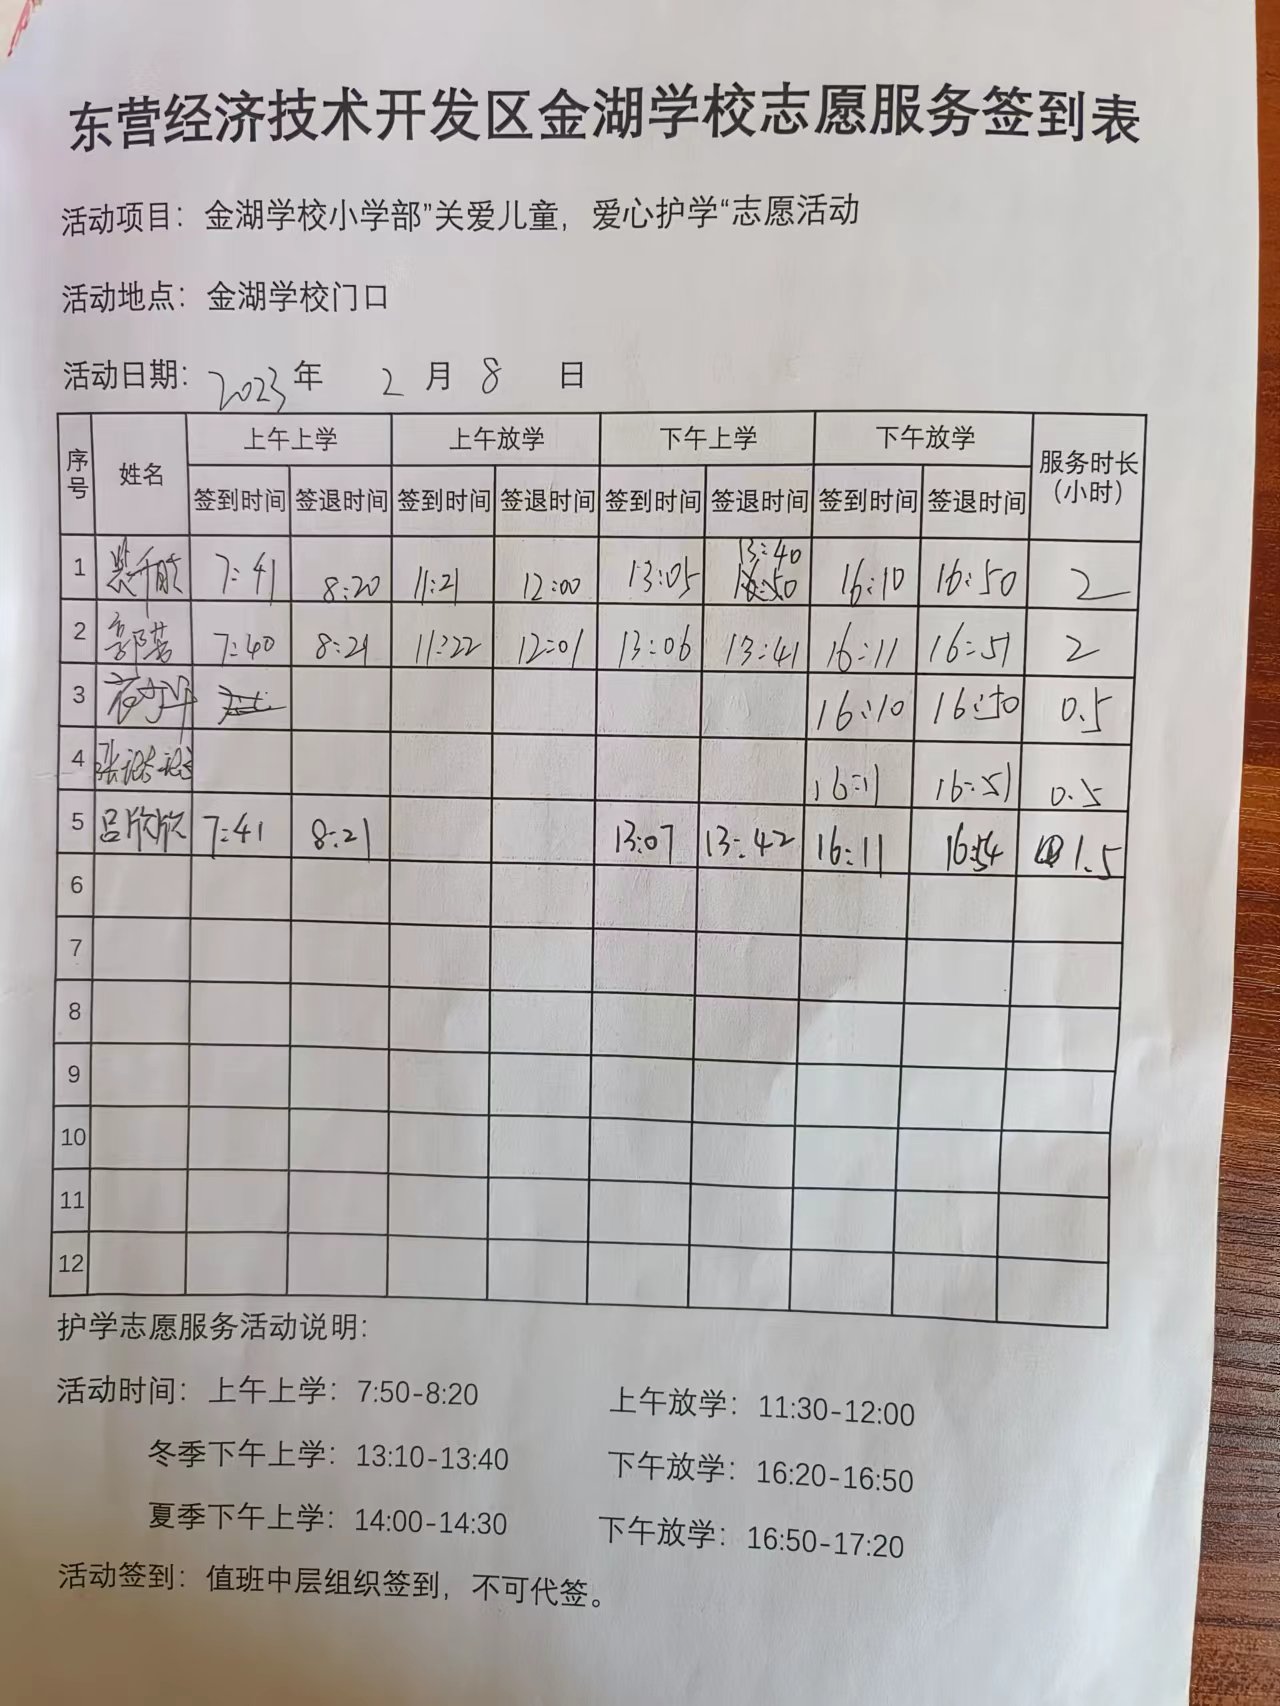 东营经济技术开发区金湖学校志愿服务签到表
活动项目：金湖学校小学部”关爱儿童，爱心护学“志愿活动
活动地点：金湖学校门口
活动日期：2023年 2 月 8 日
序号 姓名 上午上学 上午放学 下午上学 下午放学 服务时长（小时）
签到时间 签退时间 签到时间 签退时间 签到时间 签退时间 签到时间 签退时间
1 7:41 8:20 11:21 12:00 13:05 13:40 16:10 16:50 2
2 郭芸 7:40 8:21 11:22 12:01 13:06 13:41 16:11 16:51 2
3 16:10 16:50 0.5
4 16:11 16:51 0.5
5 吕欣欣 7:41 8:21 13:07 13:42 16:11 16:54 1.5
6
7
8
9
10
11
12
护学志愿服务活动说明：
活动时间：上午上学：7:50-8:20 上午放学：11:30-12:00
冬季下午上学：13:10-13:40 下午放学：16:20-16:50
夏季下午上学：14:00-14:30 下午放学：16:50-17:20
活动签到：值班中层组织签到，不可代签。